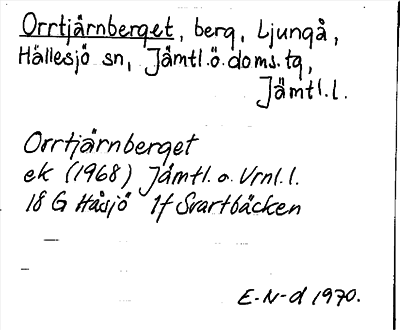 Orrtjärnberget, berg, Ljungå,
Hällesjö sn, Jämtl.ö.doms.tg,
Jämtl.l.
Orrtjärnberget
ek (1968) Jämtl. o. Vrnl.l.
18 G Håsjö 1f Svartbäcken
E-N-d 1970.